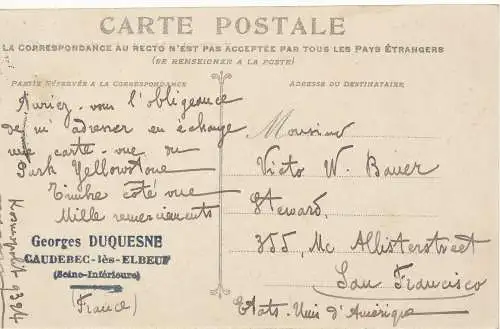 CARTE POSTALE
LA CORRESPONDANCE AU RECTO N'EST PAS ACCEPTÉE PAR TOUS LES PAYS ÉTRANGERS
(SE RENSEIGNER A LA POSTE)
PARTIE RÉSERVÉE A LA CORRESPONDANCE
Auriez-vous l'obligeance
de m'adresser en échange
une carte-vue du
Park Yellowstone
Timbre côté vue
Mille remerciements
Georges DUQUESNE
CAUDEBEC-lès-ELBEUF
(Seine-Inférieure)
(France)
Kosmopolit 9394
ADRESSE DU DESTINATAIRE
Monsieur
Victo W. Bauer
Steward
355, Mc Allisterstreet
San Francisco
Etats-Unis d'Amérique